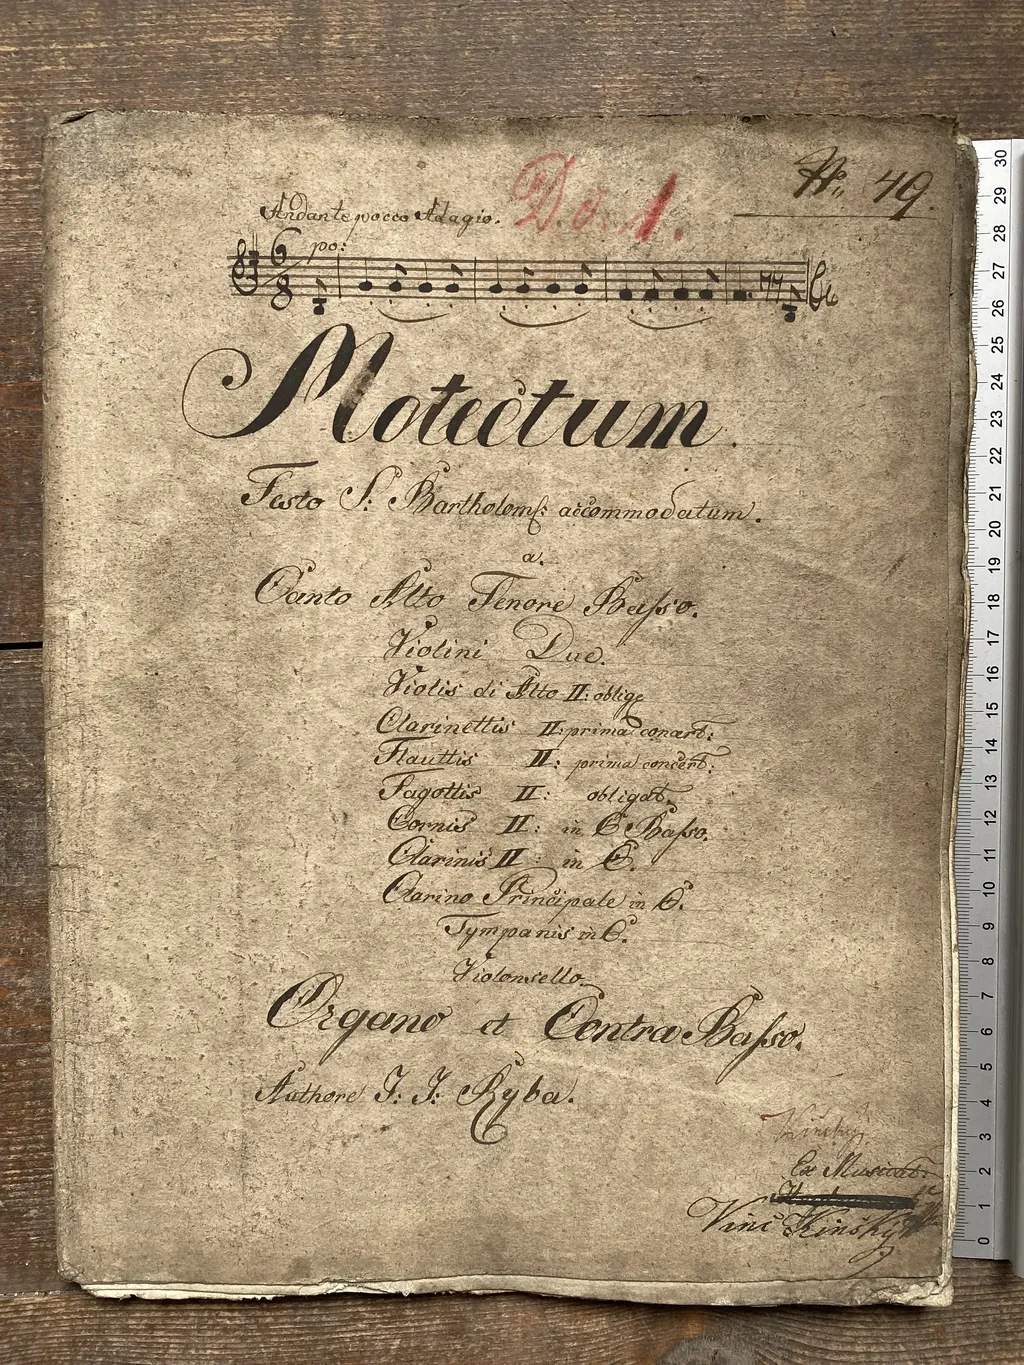 No. 49.
D. o. 1.
Andante pocco Adagio.
po:
6
8
Motectum.
Festo S: Bartholom: accommodatum.
a.
Canto Alto Tenore Basso.
Violini Due.
Violis di Alto II: oblige
Clarinettis II: prima concert:
Flauttis II: prima concert:
Fagottis II: obligat.
Cornis II: in C Basso.
Clarinis II: in C.
Clarino Principale in C.
Tympanis in C.
Violonsello
Organo et Contra Basso.
Authore J: J: Ryba.
Kinsky
Ex Musical.
Vinc Kinsky
30
29
28
27
26
25
24
23
22
21
20
19
18
17
16
15
14
13
12
11
10
9
8
7
6
5
4
3
2
1
0